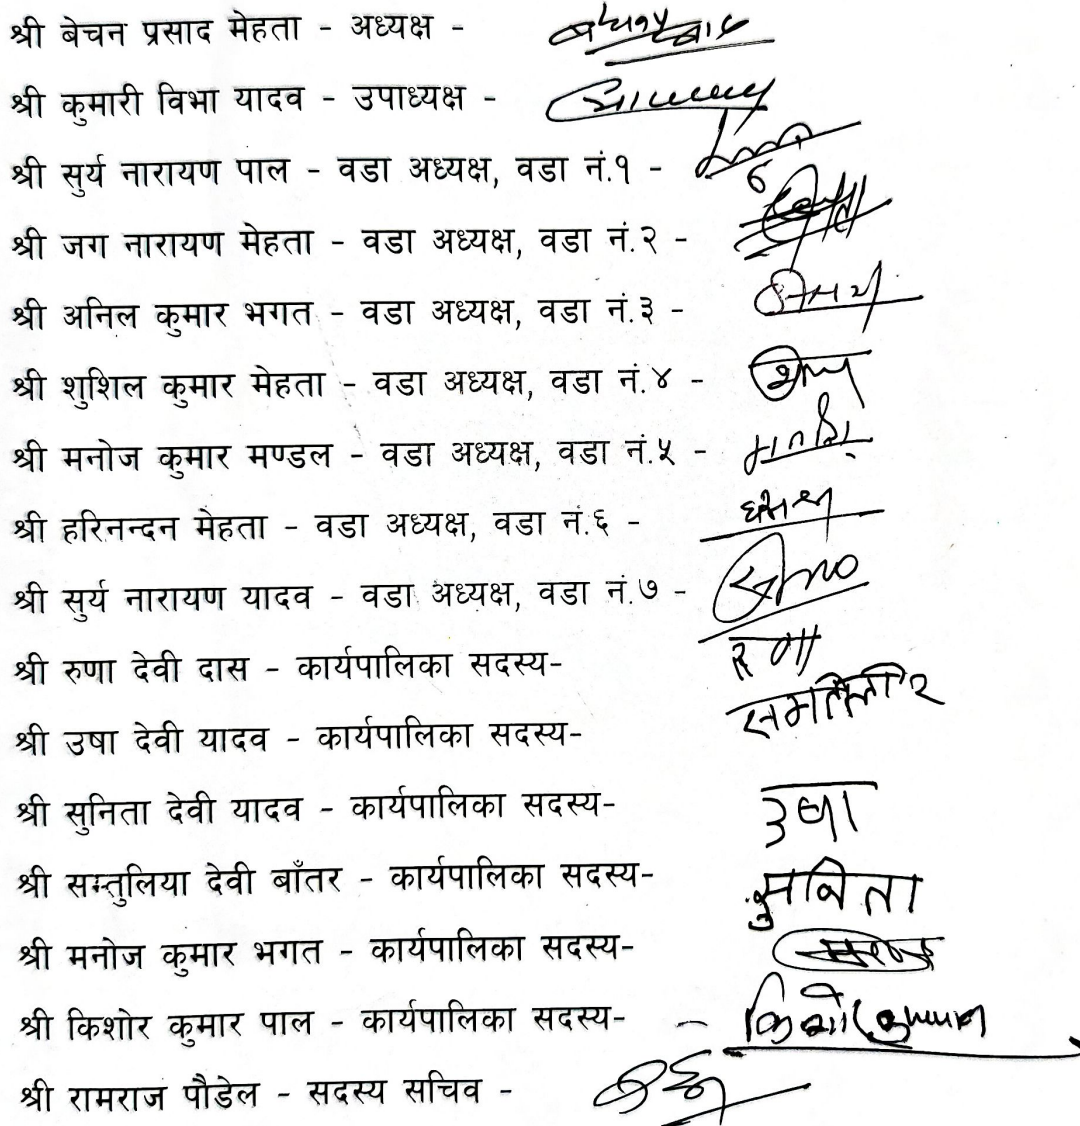 श्री बेचन प्रसाद मेहता - अध्यक्ष -
श्री कुमारी विभा यादव - उपाध्यक्ष -
श्री सुर्य नारायण पाल - वडा अध्यक्ष, वडा नं.१ -
श्री जग नारायण मेहता - वडा अध्यक्ष, वडा नं.२ -
श्री अनिल कुमार भगत - वडा अध्यक्ष, वडा नं.३ -
श्री शुशिल कुमार मेहता - वडा अध्यक्ष, वडा नं.४ -
श्री मनोज कुमार मण्डल - वडा अध्यक्ष, वडा नं.५ -
श्री हरिनन्दन मेहता - वडा अध्यक्ष, वडा नं.६ -
श्री सुर्य नारायण यादव - वडा अध्यक्ष, वडा नं.७ -
श्री रुणा देवी दास - कार्यपालिका सदस्य-
श्री उषा देवी यादव - कार्यपालिका सदस्य-
श्री सुनिता देवी यादव - कार्यपालिका सदस्य- उषा
श्री सम्तुलिया देवी बाँतर - कार्यपालिका सदस्य- सुनिता
श्री मनोज कुमार भगत - कार्यपालिका सदस्य-
श्री किशोर कुमार पाल - कार्यपालिका सदस्य-
श्री रामराज पौडेल - सदस्य सचिव -